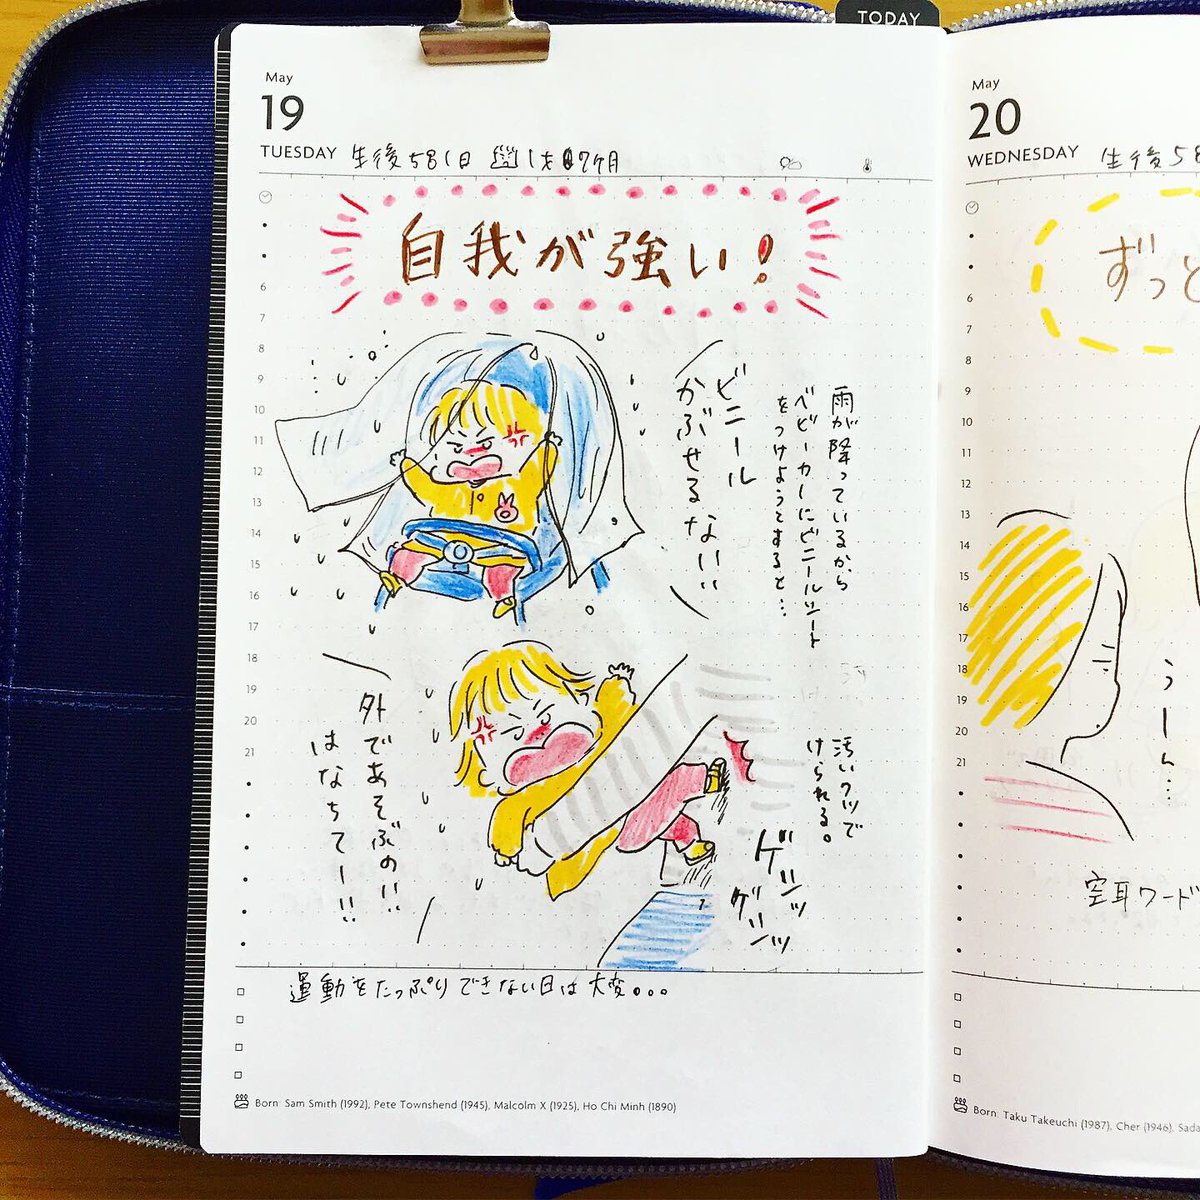 TODAY
May
19
TUESDAY 生後581日 1才7ヶ月
自我が強い!
雨が降っているから
ベビーカーにビニールシート
をつけようとすると…
ビニール
かぶせるない!!
汚いクツで
けられる。
ゲシッ
ゲシッ
外であそぶの!!
はなちてー!!
運動をたっぷりできない日は大変。。。
6
7
8
9
10
11
12
13
14
15
16
17
18
19
20
21
Born: Sam Smith (1992), Pete Townshend (1945), Malcolm X (1925), Ho Chi Minh (1890)
May
20
WEDNESDAY 生後58
ずっと
6
7
8
9
10
11
12
13
14
15
16
17
18
19
20
21
うーん…
空耳ワード
Born: Taku Takeuchi (1987), Cher (1946), Sada